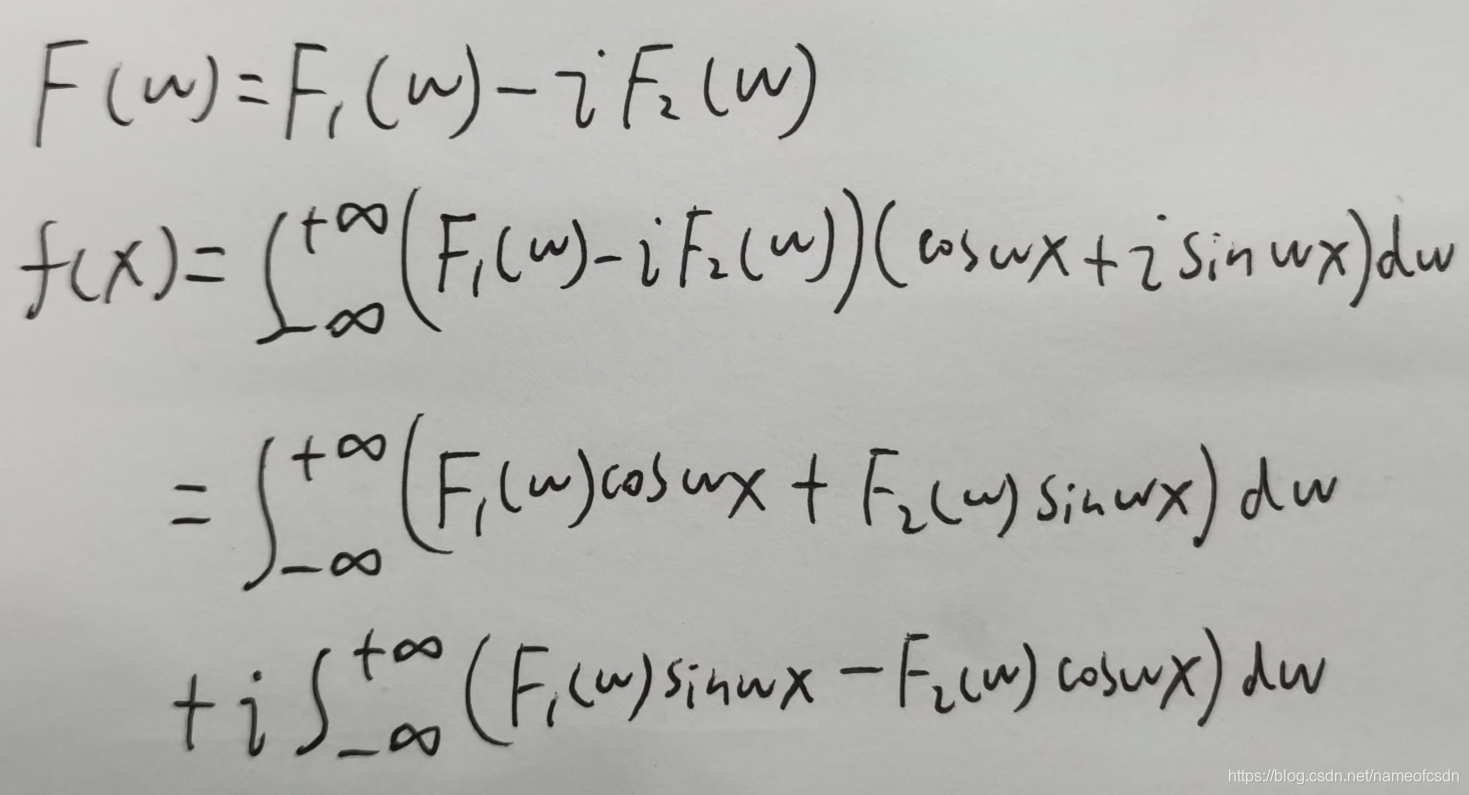 F(w)=F₁(w)-iF₂(w)
f(x)=∫_{-∞}^{+∞}(F₁(w)-iF₂(w))(coswx+isinwx)dw
=∫_{-∞}^{+∞}(F₁(w)coswx+F₂(w)sinwx)dw
+i∫_{-∞}^{+∞}(F₁(w)sinwx-F₂(w)coswx)dw
https://blog.csdn.net/nameofcsdn